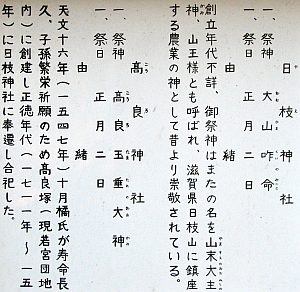 日枝神社
一、祭神 大山咋命
一、祭日 正月二日
由緒
創立年代不詳、御祭神はまたの名を山末大主
神、山王様とも呼ばれ、滋賀県日枝山に鎮座
する農業の神として昔より崇敬されている。
髙良神社
一、祭神 髙良玉垂大神
一、祭日 正月二日
由緒
天文十六年(一五四七年)十月橘氏が寿命長
久、子孫繁栄祈願のため髙良塚(現若宮団地
内)に創建し正徳年代(一七一一年〜一五
年)に日枝神社に奉還し合祀した。